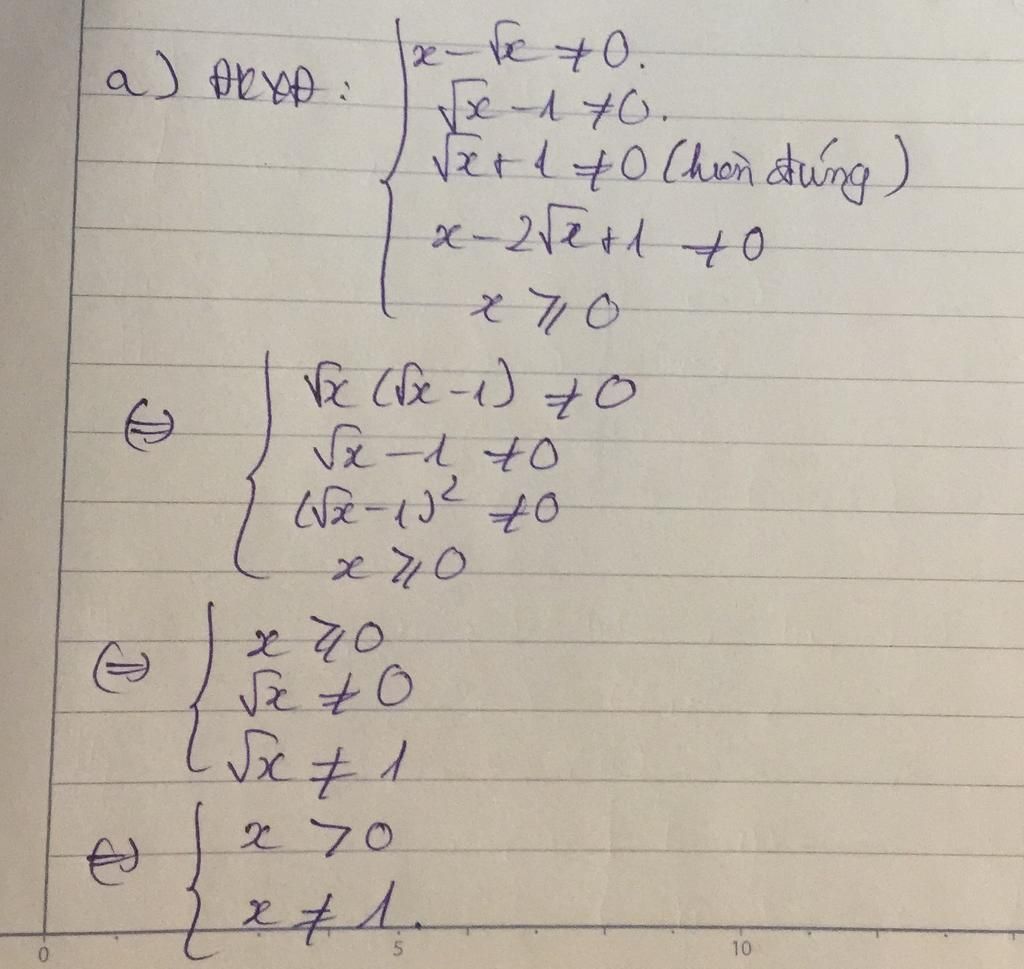 a) ĐKXĐ: { x - √x ≠ 0.
√x - 1 ≠ 0.
√x + 1 ≠ 0 (luôn đúng)
x - 2√x + 1 ≠ 0
x ⩾ 0
⇔ { √x (√x - 1) ≠ 0
√x - 1 ≠ 0
(√x - 1)² ≠ 0
x ⩾ 0
⇔ { x ⩾ 0
√x ≠ 0
√x ≠ 1
⇔ { x > 0
x ≠ 1.
0 5 10